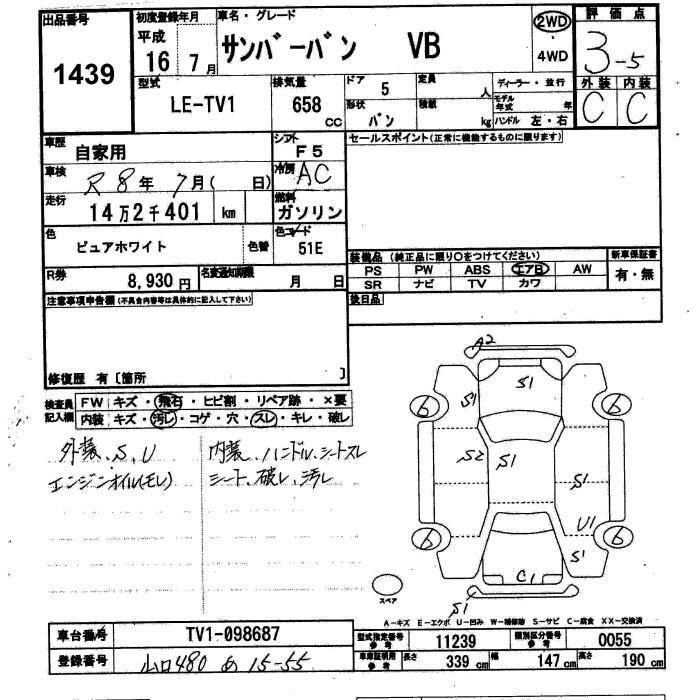 出品番号
1439
初度登録年月
平成
16年7月
車名・グレード
サンバーバン VB
2WD
4WD
評価点
3-5
型式
LE-TV1
排気量
658 CC
ドア 5
形状 バン
定員 人
積載 kg
ディーラー・並行
モデル年式 年
ハンドル 左・右
外装 内装
C C
車歴 自家用
シフト F5
車検 R8年7月( 日)
冷房 AC
走行 14万2千401 km
燃料 ガソリン
色 ピュアホワイト 色替
色コード 51E
R券 8,930円
名変通知期限 月 日
セールスポイント(正常に機能するものに限ります)
装備品 (純正品に限り○をつけてください)
新車保証書
PS PW ABS エアB AW
SR ナビ TV カワ
有・無
後日品
注意事項申告欄(不具合内容等は具体的に記入して下さい)
修復歴 有〔箇所 〕
検査員記入欄
FW キズ・飛石・ヒビ割・リペア跡・×要
内装 キズ・汚レ・コゲ・穴・スレ・キレ・破レ
外装、S、U
エンジンオイル(モレ)
内装、ハンドル、シートスレ
シート、破レ、汚レ
A2
S1
S1
6
6
S2
S1
S1
U1
6
6
S1
C1
S1
スペア
A-キズ E-エクボ U-凹み W-補修跡 S-サビ C-腐食 XX-交換済
車台番号 TV1-098687
登録番号 山口480 あ 15-55
型式指定番号 参考 11239
類別区分番号 参考 0055
車庫証明用 参考 長さ 339 cm 幅 147 cm 高さ 190 cm